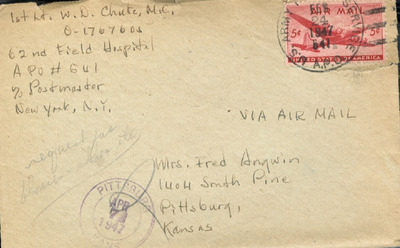 1st Lt. W. D. Chute, M.C.
O-1767603
62nd Field Hospital
APO # 641
c/o Postmaster
New York, N.Y.
AIR MAIL
5¢ 5¢
UNITED STATES OF AMERICA
ARMY
APR
24
1947
641
A.P.O.
VIA AIR MAIL
request for
Mrs. Fred Angwin
1404 South Pine
Pittsburg,
Kansas
PITTSBURG
APR
1947